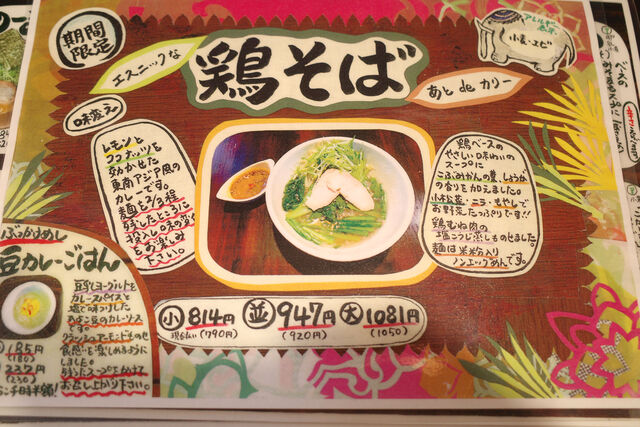 期間
限定
エスニックな
鶏そば
あと de カリー
アレルギー
小麦・エビ
味変え
レモンと
ココナッツを
効かせた
東南アジア風の
カレーです。
麺を2/3程
残したところに
投入し味の変
をお楽しみ
下さい。
鶏ベースの
やさしい味わいの
スープに
こぶみかんの葉、しょうが
の香りを加えました。
小松菜・ニラ・もやしで
お野菜たっぷりです!!
鶏むね肉の
塩こうじ蒸しものせました。
麺は米粉入り
ノンエッグめんです。
小 814円
現金払い(790円)
並 947円
(920円)
大 1081円
(1050)
ぶっかけめし
豆カレーごはん
豆乳ヨーグルトを
カレースパイスと
塩で味つけした
ひよこ豆のカレーソース
です。
クランシュアーモンドものせ
食感を楽しめるように
しました。
残ったスープをかけて
お召し上がり下さい。
185円
(180)
237円
(230)